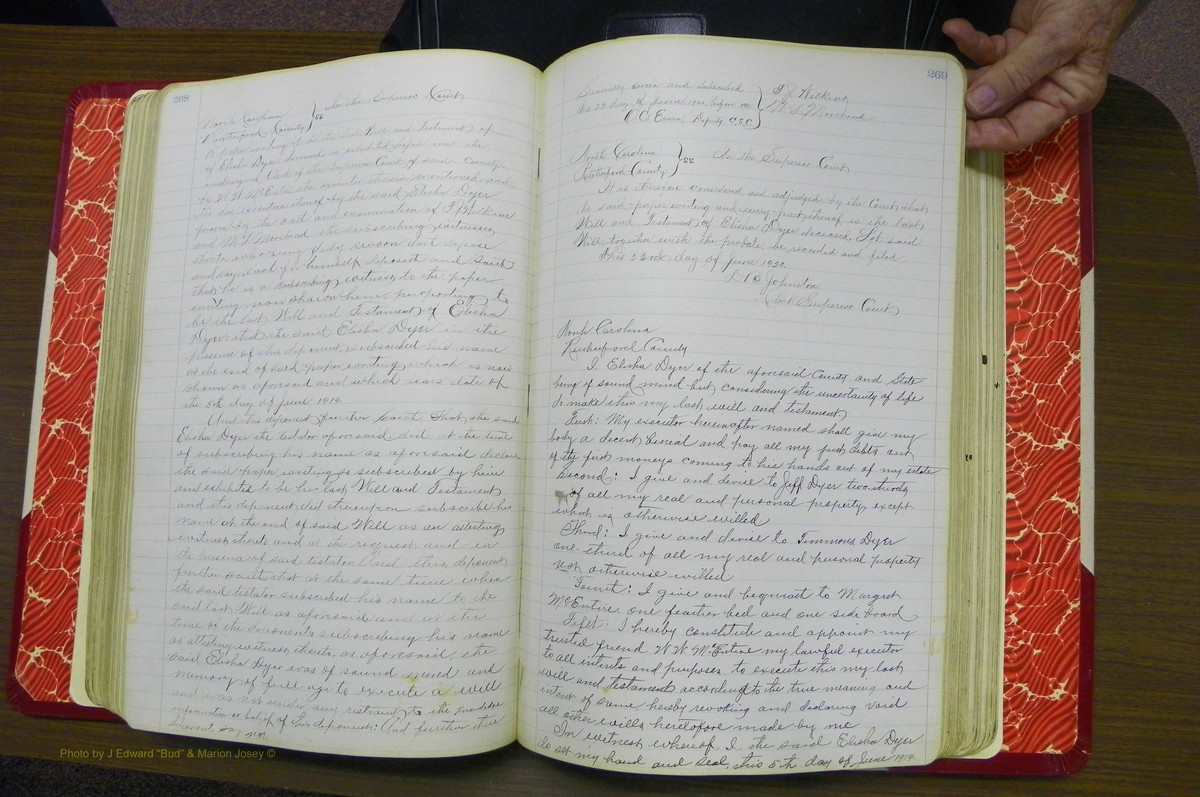 268
North Carolina
Rutherford County } SS In the Superior Court
A paper writing of the last Will and Testament of
of Elisha Dyer deceased is exhibited before me the
undersigned Clerk of the Superior Court of said County
by W. W. McEntire the executor therein mentioned, and
the due execution thereof by the said Elisha Dyer
proven by the oath and examination of T. J. Wilkins
and M. L. Morehead the subscribing witnesses
thereto, who being duly swoon doth depose
and say each for himself deposeth and saith
that he is a subscribing witness to the paper
writing now shown him, purporting to
be the last Will and Testament of Elisha
Dyer that the said Elisha Dyer in the
presence of this deponent, subscribed his name
at the end of said paper writing which is now
shown as aforesaid and which bears date of
the 5th day of June 1914.
And this deponent further saith that the said
Elisha Dyer the testator aforesaid did at the time
of subscribing his name as aforesaid declare
the said paper writing so subscribed by him
and exhibited to be his last Will and Testament
and this deponent did thereupon subscribe his
name at the end of said Will as an attesting
witness thereto and at the request and in
the presence of said testator. And this deponent
further saith that at the same time when
the said testator subscribed his name to the
said last Will as aforesaid and at the
time of the deponents subscribing his name
as attesting witness thereto as aforesaid, the
said Elisha Dyer was of sound mind and
memory of full age to execute a will
and was not under any restraint to the knowledge
information or belief of this deponent: And further these
deponents say not.
269
Severally sworn and subscribed
this 22 day of June 1920 before me
Deputy C.S.C. } T. J. Wilkins
M. L. Morehead
North Carolina
Rutherford County } SS In the Superior Court
It is therefore considered and adjudged by the Court that
the said paper writing and every part thereof is the last
Will and Testament of Elisha Dyer deceased. Let said
Will, together with the probate be recorded and filed
This 22nd day of June 1920.
Johnston
Clerk Superior Court
North Carolina
Rutherford County
I Elisha Dyer of the aforesaid County and State
being of sound mind but considering the uncertainty of life
do make this my last will and testament
First: My executor hereinafter named shall give my
body a decent bereal and pay all my just debts out
of the first moneys coming to his hands out of my estate
Second: I give and devise to Jeff Dyer two-thirds
of all my real and personal property, except
what is otherwise willed
Third: I give and devise to Timmons Dyer
one third of all my real and personal property
not otherwise willed
Fourt: I give and bequeat to Margret
McEntire one feather bed and one side board
Fift: I hereby constitute and appoint my
trusted friend W W McEntire my lawful executor
to all intents and purposes, to execute this my last
will and testament according to the true meaning and
intent of same, hereby revoking and declaring void
all other wills heretofore made by me
In witness whereof, I the said Elisha Dyer
do set my hand and seal, this 5th day of June 1914
Photo by J Edward "Bud" & Marion Josey ©